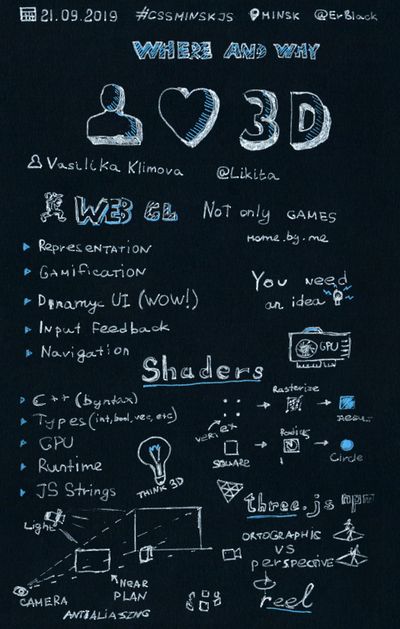 21.09.2019 #CSSMINSKJS MINSK @ErBlack
WHERE AND WHY
3D
Vasilika Klimova @Likita
WEB GL Not only GAMES
Home.by.me
Representation
Gamification
Dynamyc UI (WOW!)
Input Feedback
Navigation
You need
an idea
GPU
Shaders
C++ (Syntax)
Types (int, bool, vec, etc)
GPU
Runtime
JS Strings
THINK 3D
Rasterize
vertex
Result
SQUARE
Radius
Circle
three.js npm
ORTOGRAPHIC
VS
perspective
Light
NEAR
PLAN
CAMERA
ANTIALIASING
reel